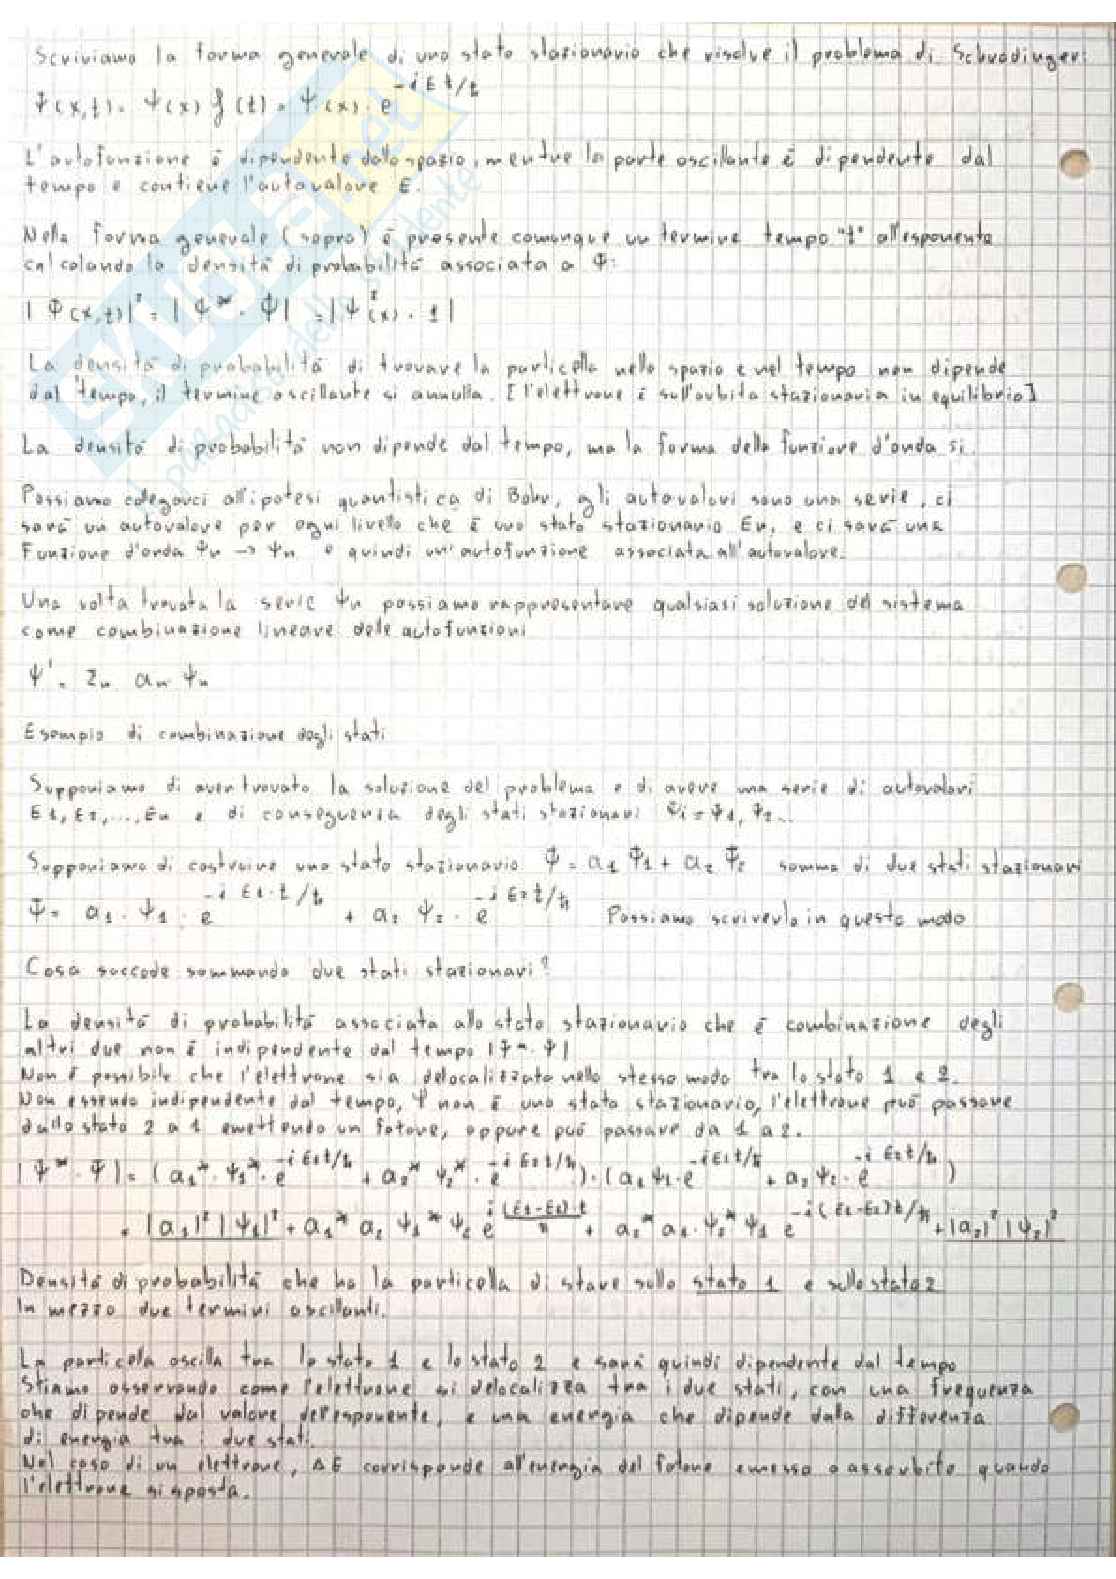 Scriviamo la forma generale di uno stato stazionario che risolve il problema di Schrodinger:
Ψ(x,t) = ψ(x) f(t) = ψ(x) · e^{-iEt/ħ}
L'autofunzione è dipendente dallo spazio, mentre la parte oscillante è dipendente dal
tempo e contiene l'autovalore E.
Nella forma generale (sopra) è presente comunque un termine tempo "t" all'esponente
calcolando la densità di probabilità associata a Φ:
|Φ(x,t)|² = |Φ* · Φ| = |ψ²(x) · 1|
La densità di probabilità di trovare la particella nello spazio e nel tempo non dipende
dal tempo, il termine oscillante si annulla. [l'elettrone è sull'orbita stazionaria in equilibrio]
La densità di probabilità non dipende dal tempo, ma la forma della funzione d'onda si.
Possiamo collegarci all'ipotesi quantistica di Bohr, gli autovalori sono una serie, ci
sarà un autovalore per ogni livello che è uno stato stazionario En, e ci sarà una
Funzione d'onda Ψn → ψn e quindi un'autofunzione associata all'autovalore.
Una volta trovata la serie ψn possiamo rappresentare qualsiasi soluzione del sistema
come combinazione lineare delle autofunzioni
ψ' = Σn an ψn
Esempio di combinazione degli stati
Supponiamo di aver trovato la soluzione del problema e di avere una serie di autovalori
E1, E2, ..., En e di conseguenza degli stati stazionari Ψi = Ψ1, Ψ2...
Supponiamo di costruire uno stato stazionario Ψ = a1 Ψ1 + a2 Ψ2 somma di due stati stazionari
Ψ = a1 · ψ1 · e^{-iE1·t/ħ} + a2 ψ2 · e^{-iE2t/ħ} Possiamo scriverlo in questo modo
Cosa succede sommando due stati stazionari?
La densità di probabilità associata allo stato stazionario che è combinazione degli
altri due non è indipendente dal tempo |Ψ* · Ψ|
Non è possibile che l'elettrone sia delocalizzato nello stesso modo tra lo stato 1 e 2.
Non essendo indipendente dal tempo, Ψ non è uno stato stazionario, l'elettrone può passare
dallo stato 2 a 1 emettendo un fotone, oppure può passare da 1 a 2.
|Ψ* · Ψ| = (a1* · ψ1* · e^{-iE1t/ħ} + a2* ψ2* · e^{-iE2t/ħ}) · (a1 ψ1 · e^{-iE1t/ħ} + a2 ψ2 · e^{-iE2t/ħ})
= |a1|² |ψ1|² + a1* a2 ψ1* ψ2 e^{i(E1-E2)·t/ħ} + a2* a1 · ψ2* ψ1 e^{-i(E1-E2)t/ħ} + |a2|² |ψ2|²
Densità di probabilità che ha la particella di stare sullo stato 1 e sullo stato 2
In mezzo due termini oscillanti.
La particella oscilla tra lo stato 1 e lo stato 2 e sarà quindi dipendente dal tempo
Stiamo osservando come l'elettrone si delocalizza tra i due stati, con una frequenza
che dipende dal valore dell'esponente, e una energia che dipende dalla differenza
di energia tra i due stati.
Nel caso di un elettrone, ΔE corrisponde all'energia del fotone emesso o assorbito quando
l'elettrone si sposta.